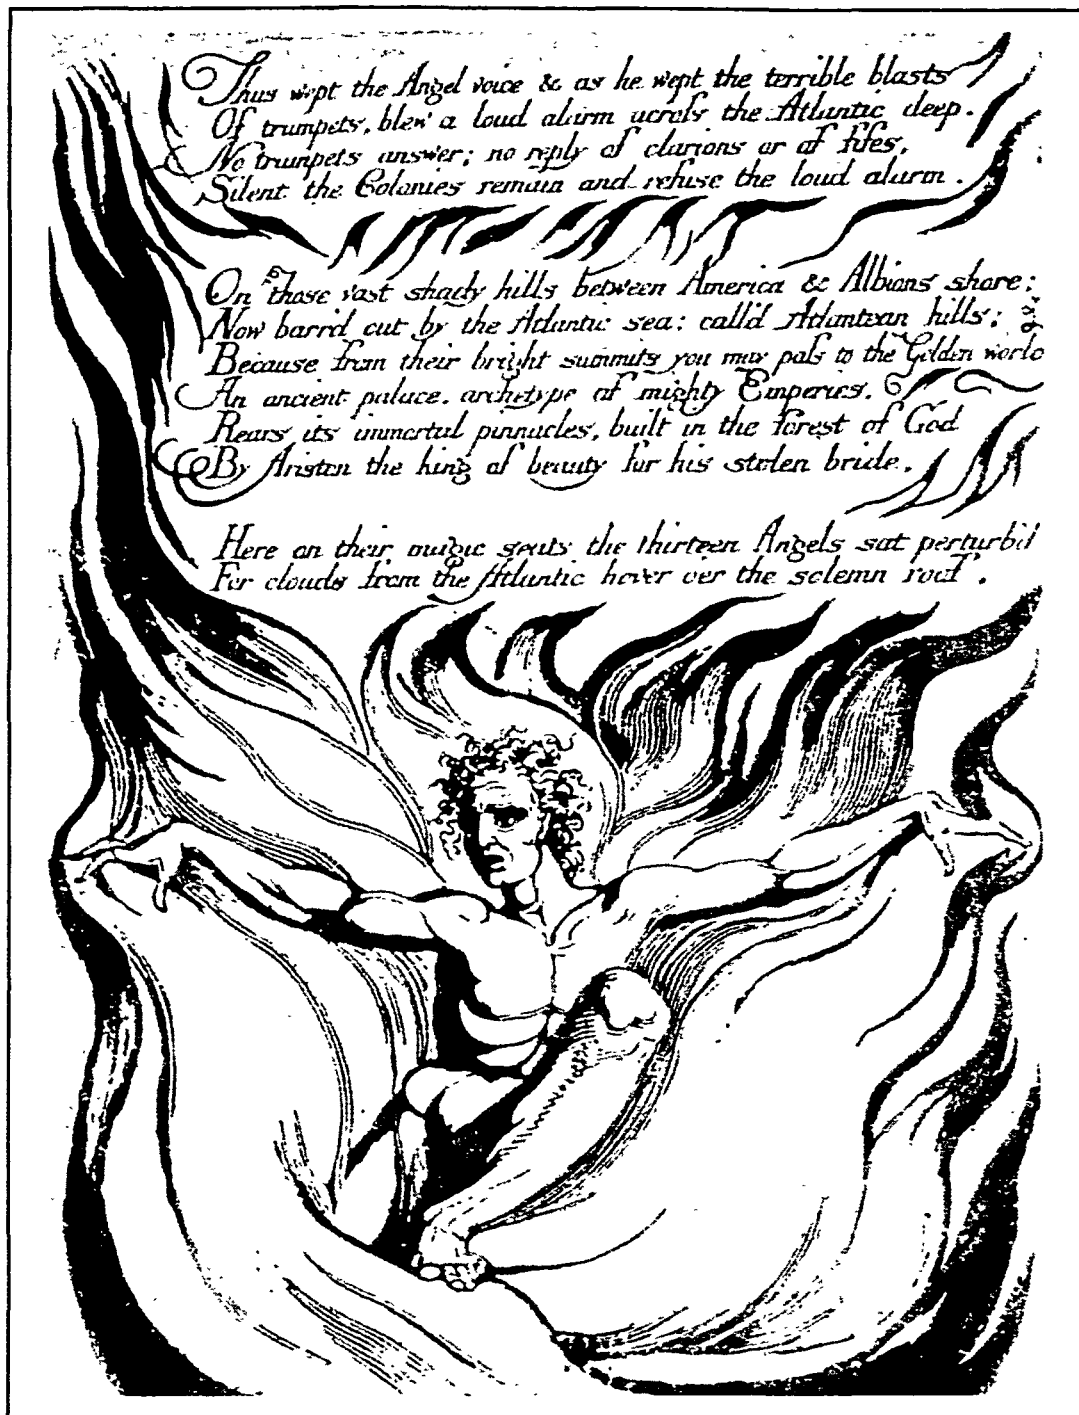 Thus wept the Angel voice & as he wept the terrible blasts
Of trumpets, blew a loud alarm across the Atlantic deep.
No trumpets answer; no reply of clarions or of fifes,
Silent the Colonies remain and refuse the loud alarm.
On those vast shady hills between America & Albions shore;
Now barrd out by the Atlantic sea: calld Atlantean hills;
Because from their bright summits you may pass to the Golden world
An ancient palace, archetype of mighty Emperies,
Rears its immortal pinnacles, built in the forest of God
By Ariston the king of beauty for his stolen bride,
Here on their magic seats the thirteen Angels sat perturb'd
For clouds from the Atlantic hover o'er the solemn roof.